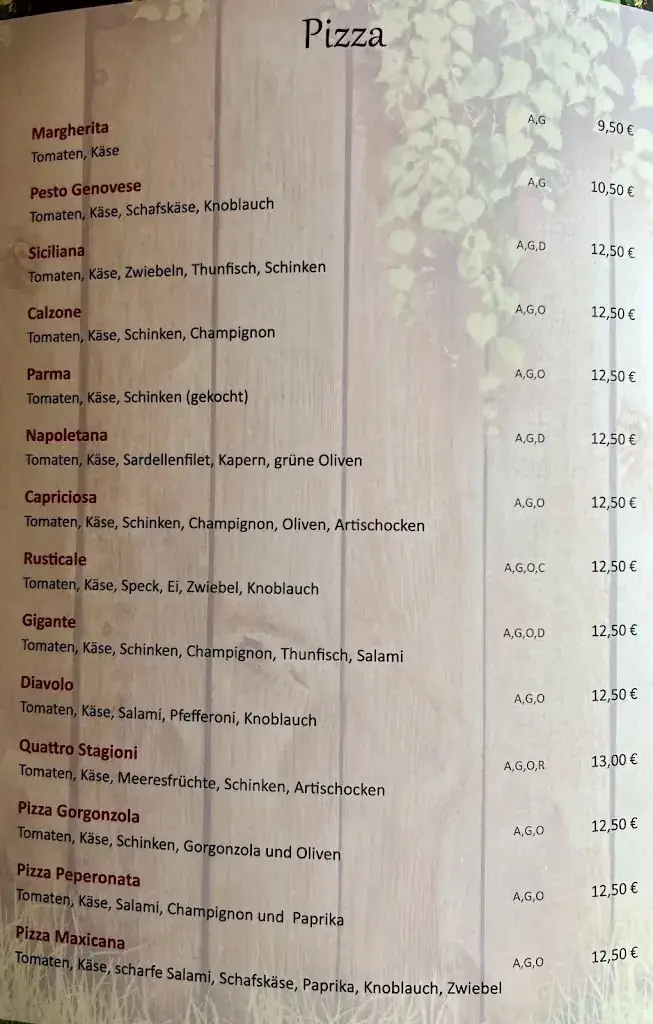 Pizza
Margherita A,G 9,50 €
Tomaten, Käse
Pesto Genovese A,G 10,50 €
Tomaten, Käse, Schafskäse, Knoblauch
Siciliana A,G,D 12,50 €
Tomaten, Käse, Zwiebeln, Thunfisch, Schinken
Calzone A,G,O 12,50 €
Tomaten, Käse, Schinken, Champignon
Parma A,G,O 12,50 €
Tomaten, Käse, Schinken (gekocht)
Napoletana A,G,D 12,50 €
Tomaten, Käse, Sardellenfilet, Kapern, grüne Oliven
Capriciosa A,G,O 12,50 €
Tomaten, Käse, Schinken, Champignon, Oliven, Artischocken
Rusticale A,G,O,C 12,50 €
Tomaten, Käse, Speck, Ei, Zwiebel, Knoblauch
Gigante A,G,O,D 12,50 €
Tomaten, Käse, Schinken, Champignon, Thunfisch, Salami
Diavolo A,G,O 12,50 €
Tomaten, Käse, Salami, Pfefferoni, Knoblauch
Quattro Stagioni A,G,O,R 13,00 €
Tomaten, Käse, Meeresfrüchte, Schinken, Artischocken
Pizza Gorgonzola A,G,O 12,50 €
Tomaten, Käse, Schinken, Gorgonzola und Oliven
Pizza Peperonata A,G,O 12,50 €
Tomaten, Käse, Salami, Champignon und Paprika
Pizza Maxicana A,G,O 12,50 €
Tomaten, Käse, scharfe Salami, Schafskäse, Paprika, Knoblauch, Zwiebel